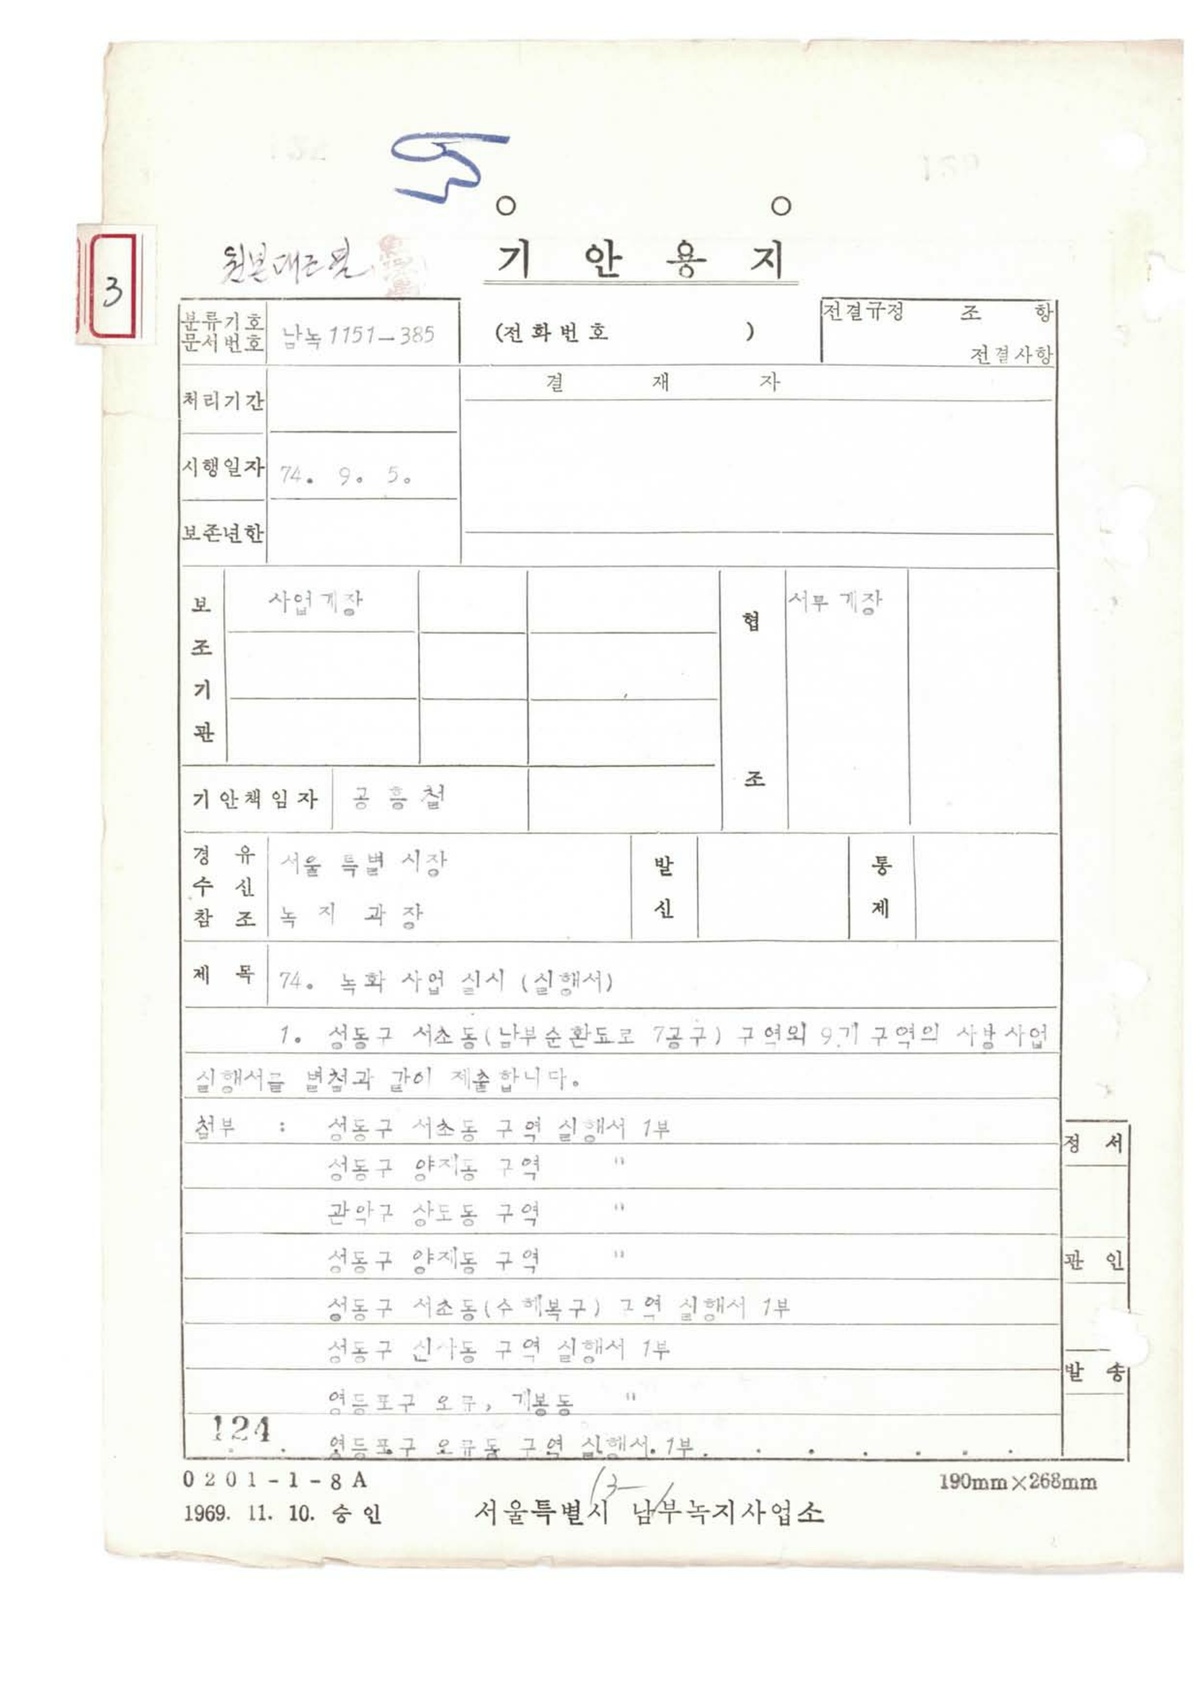 원본대조필
기 안 용 지
3
분류기호
문서번호
남녹 1151-385
(전화번호 )
전결규정 조 항
전결사항
처리기간
결 재 자
시행일자
74. 9. 5.
보존년한
보조기관
사업계장
협조
서무 계장
기안책임자
공 흥 철
경 유
수 신
참 조
서울 특별 시장
녹 지 과 장
발신
통제
제 목
74. 녹화 사업 실시 (실행서)
1. 성동구 서초동(남부순환도로 7공구) 구역외 9개 구역의 사방사업
실행서를 별첨과 같이 제출합니다.
첨부 : 성동구 서초동 구역 실행서 1부
성동구 양지동 구역 "
관악구 상도동 구역 "
성동구 양재동 구역 "
성동구 서초동(수해복구) 구역 실행서 1부
성동구 신사동 구역 실행서 1부
영등포구 오류, 개봉동 "
영등포구 오류동 구역 실행서. 1부.
정 서
관 인
발 송
124
0201-1-8A
190mm×268mm
1969. 11. 10. 승인
13-1
서울특별시 남부녹지사업소